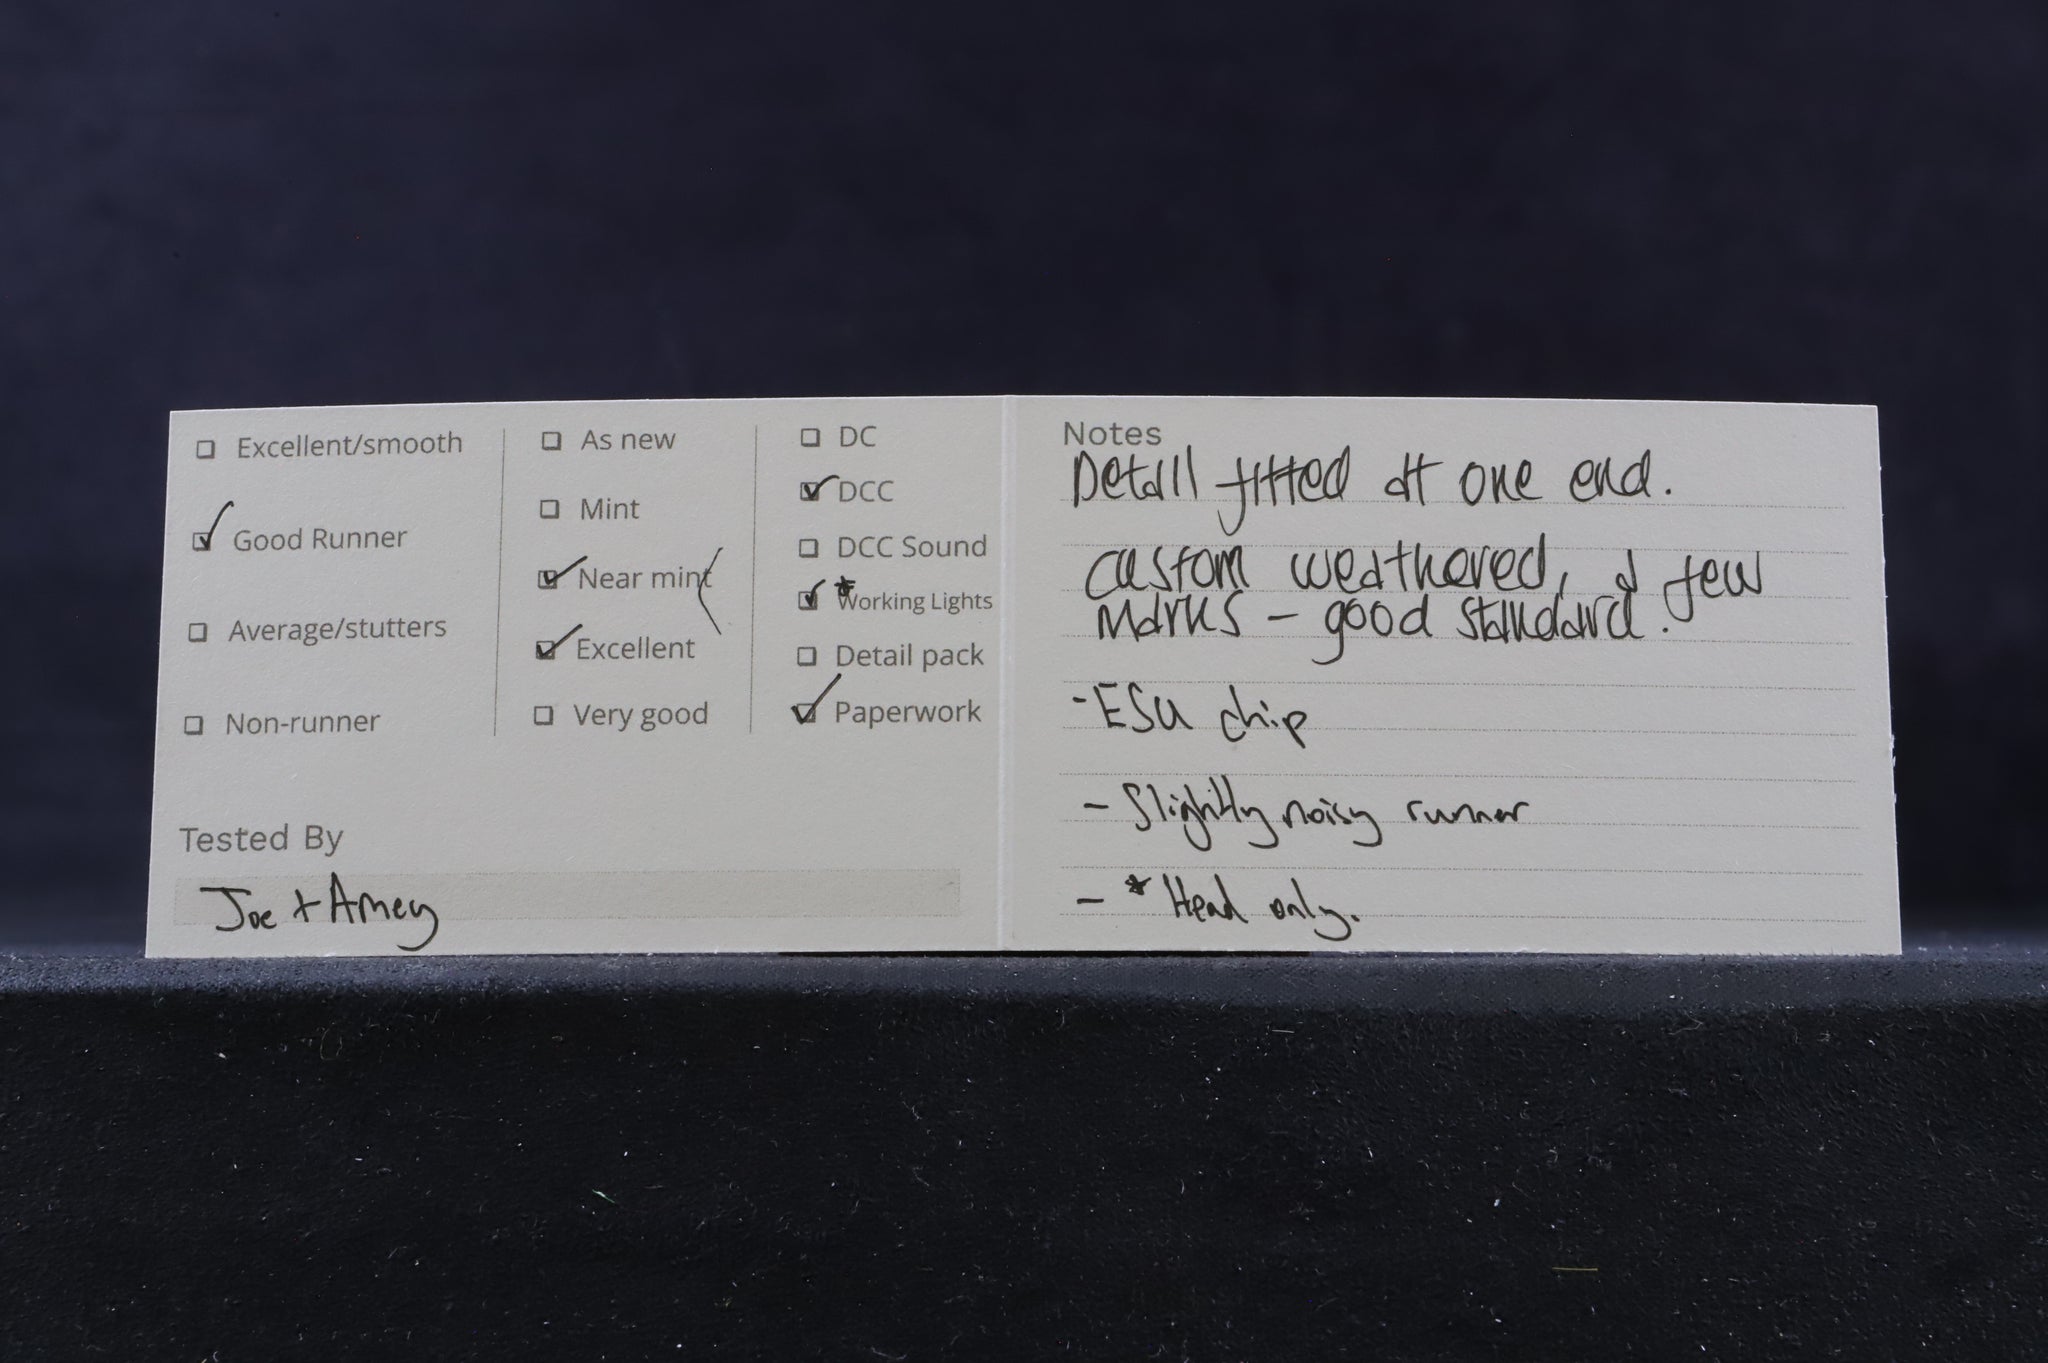 Excellent/smooth
Good Runner
Average/stutters
Non-runner
As new
Mint
Near mint
Excellent
Very good
DC
DCC
DCC Sound
*Working Lights
Detail pack
Paperwork
Tested By
Joe + Amey
Notes
Detail fitted at one end.
Custom weathered, a few
marks - good standard.
- ESU chip
- Slightly noisy runner
- * Head only.